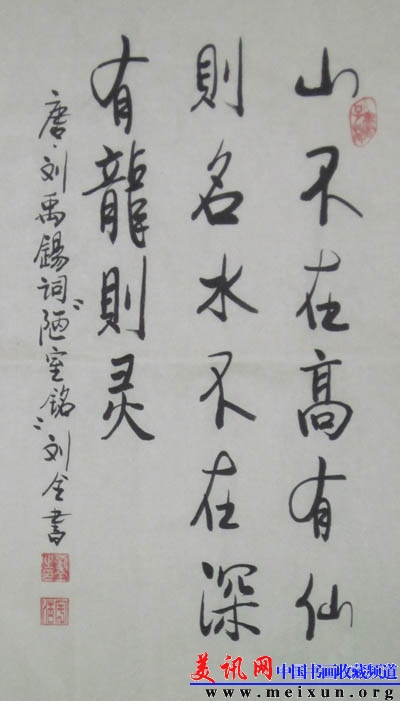 山不在高有仙
則名水不在深
有龍則灵
唐·刘禹锡词“陋室铭”刘全書
美讯网 中国书画收藏频道
www.meixun.org